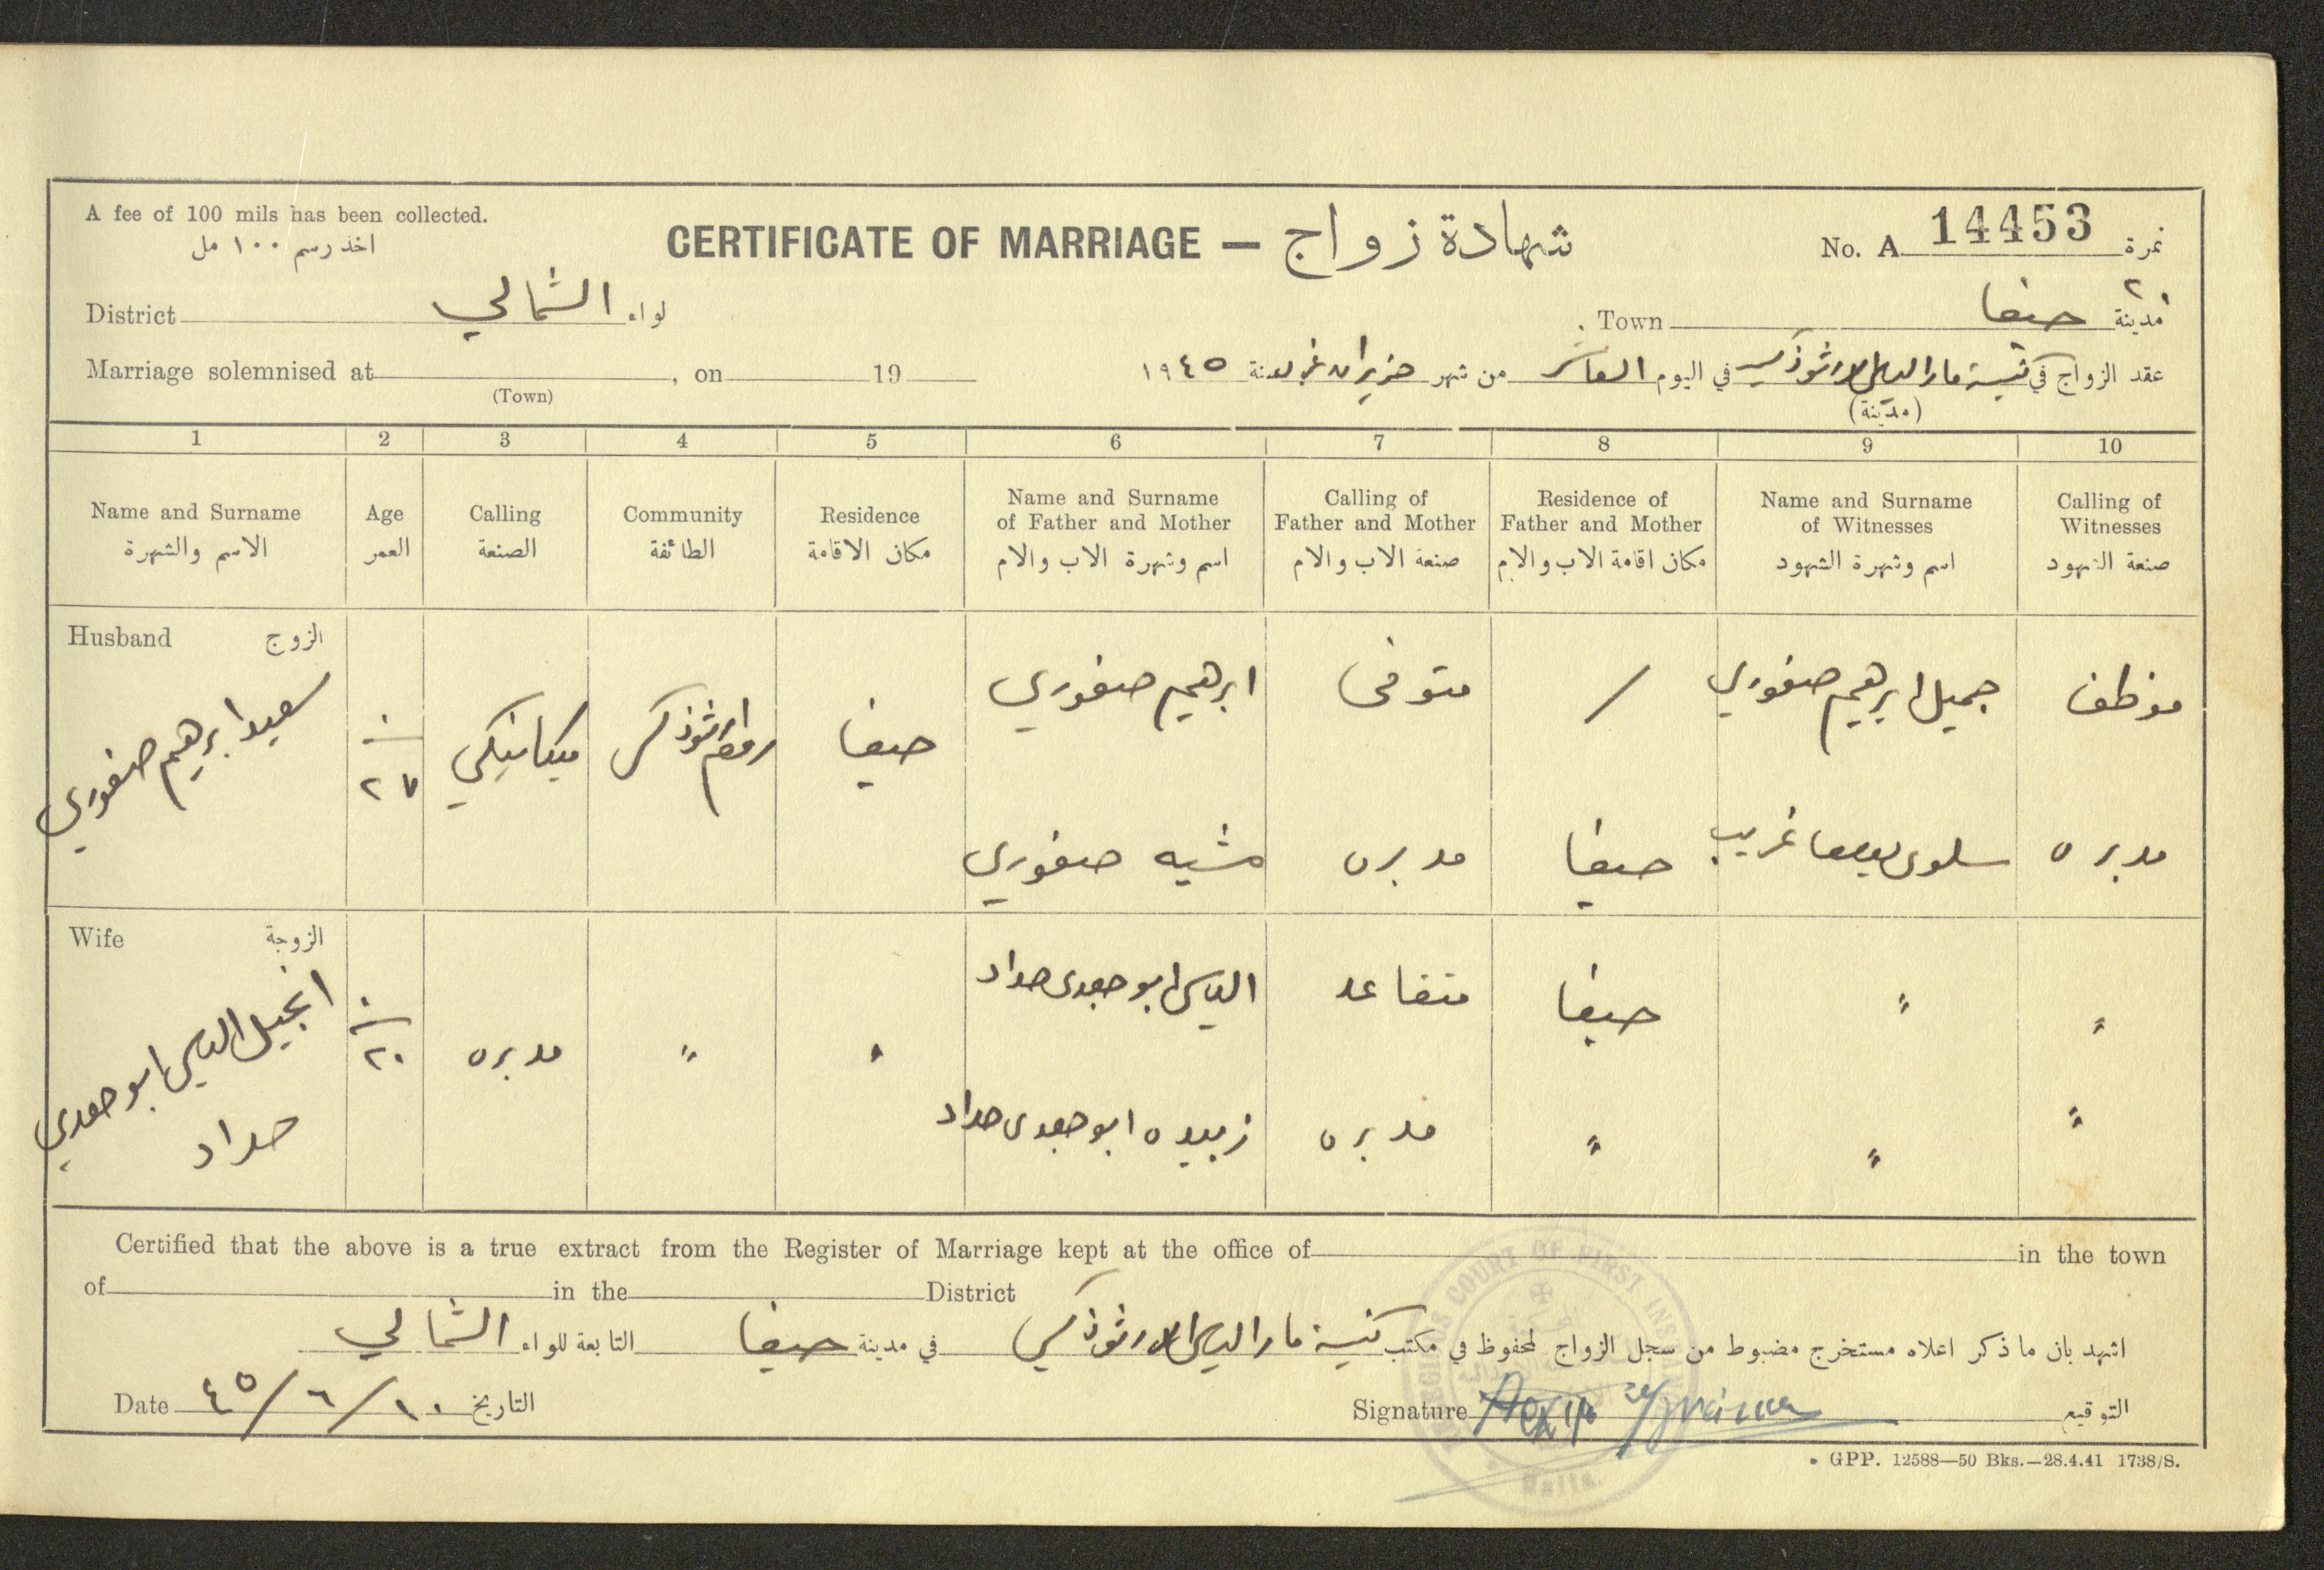 A fee of 100 mils has been collected.
اخذ رسم ١٠٠ مل
CERTIFICATE OF MARRIAGE — شهادة زواج
No. A 14453 نمرة
District الشمالي لواء
Town حيفا مدينة
٢
Marriage solemnised at , on 19
(Town)
عقد الزواج في كنيسة مار الياس الارثوذكسية في اليوم العاشر من شهر حزيران لسنة ١٩٤٥
(مدينة)
1 2 3 4 5 6 7 8 9 10
Name and Surname الاسم والشهرة
Age العمر
Calling الصنعة
Community الطائفة
Residence مكان الاقامة
Name and Surname of Father and Mother اسم وشهرة الاب والام
Calling of Father and Mother صنعة الاب والام
Residence of Father and Mother مكان اقامة الاب والام
Name and Surname of Witnesses اسم وشهرة الشهود
Calling of Witnesses صنعة الشهود
Husband الزوج
سعيد ابرهيم صفوري
٢٧
ميكانيكي
روم ارثوذكس
حيفا
ابرهيم صفوري
متوفى
/
جميل ابرهيم صفوري
موظف
صفوري
مدبره
حيفا
سلوى غريب
مدبره
Wife الزوجة
انجيل الياس ابو جعدى
حداد
٢٠
مدبره
"
"
الياس ابو جعدى حداد
متقاعد
حيفا
"
"
زبيده ابو جعدى حداد
مدبره
"
"
"
Certified that the above is a true extract from the Register of Marriage kept at the office of in the town
of in the District
اشهد بان ما ذكر اعلاه مستخرج مضبوط من سجل الزواج المحفوظ في مكتب كنيسة مار الياس الارثوذكسي في مدينة حيفا التابعة للواء الشمالي
Date ١٠/٦/٤٥ التاريخ
Signature التوقيع
RELIGIOUS COURT OF FIRST INSTANCE
Haifa.
GPP. 12588—50 Bks.—28.4.41 1738/S.